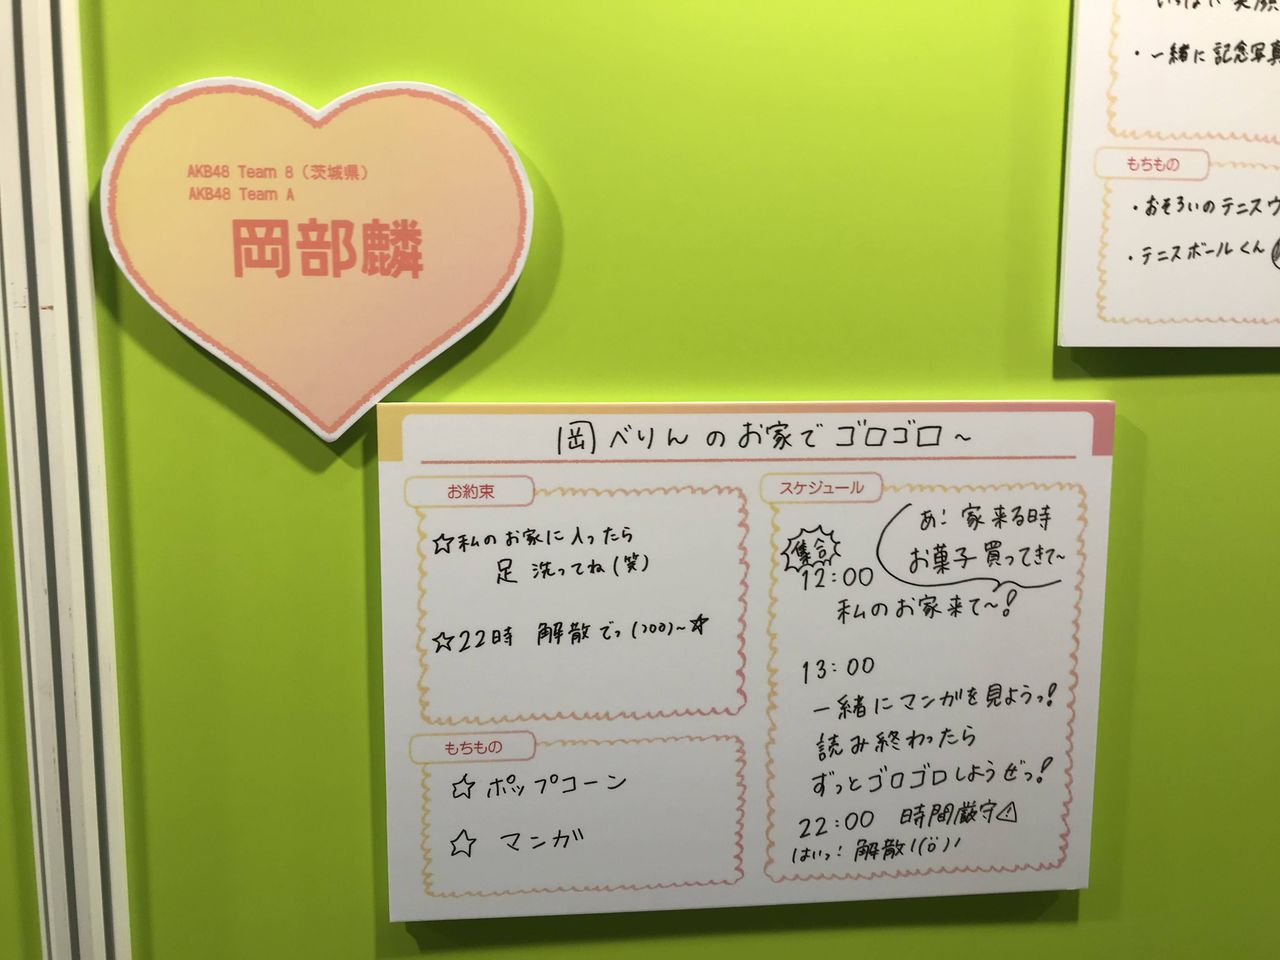 AKB48 Team 8（茨城県）
AKB48 Team A
岡部麟
・一緒に記念写真
もちもの
・おそろいのテニスウ
・テニスボールくん
岡べりんのお家でゴロゴロ~
お約束
☆私のお家に入ったら
足洗ってね(笑)
☆22時 解散でっ
もちもの
☆ポップコーン
☆マンガ
スケジュール
あ! 家来る時
お菓子買ってきて~
集合
12:00
私のお家来て~!
13:00
一緒にマンガを見ようっ!
読み終わったら
ずっとゴロゴロしようぜっ!
22:00 時間厳守⚠
はいっ! 解散!